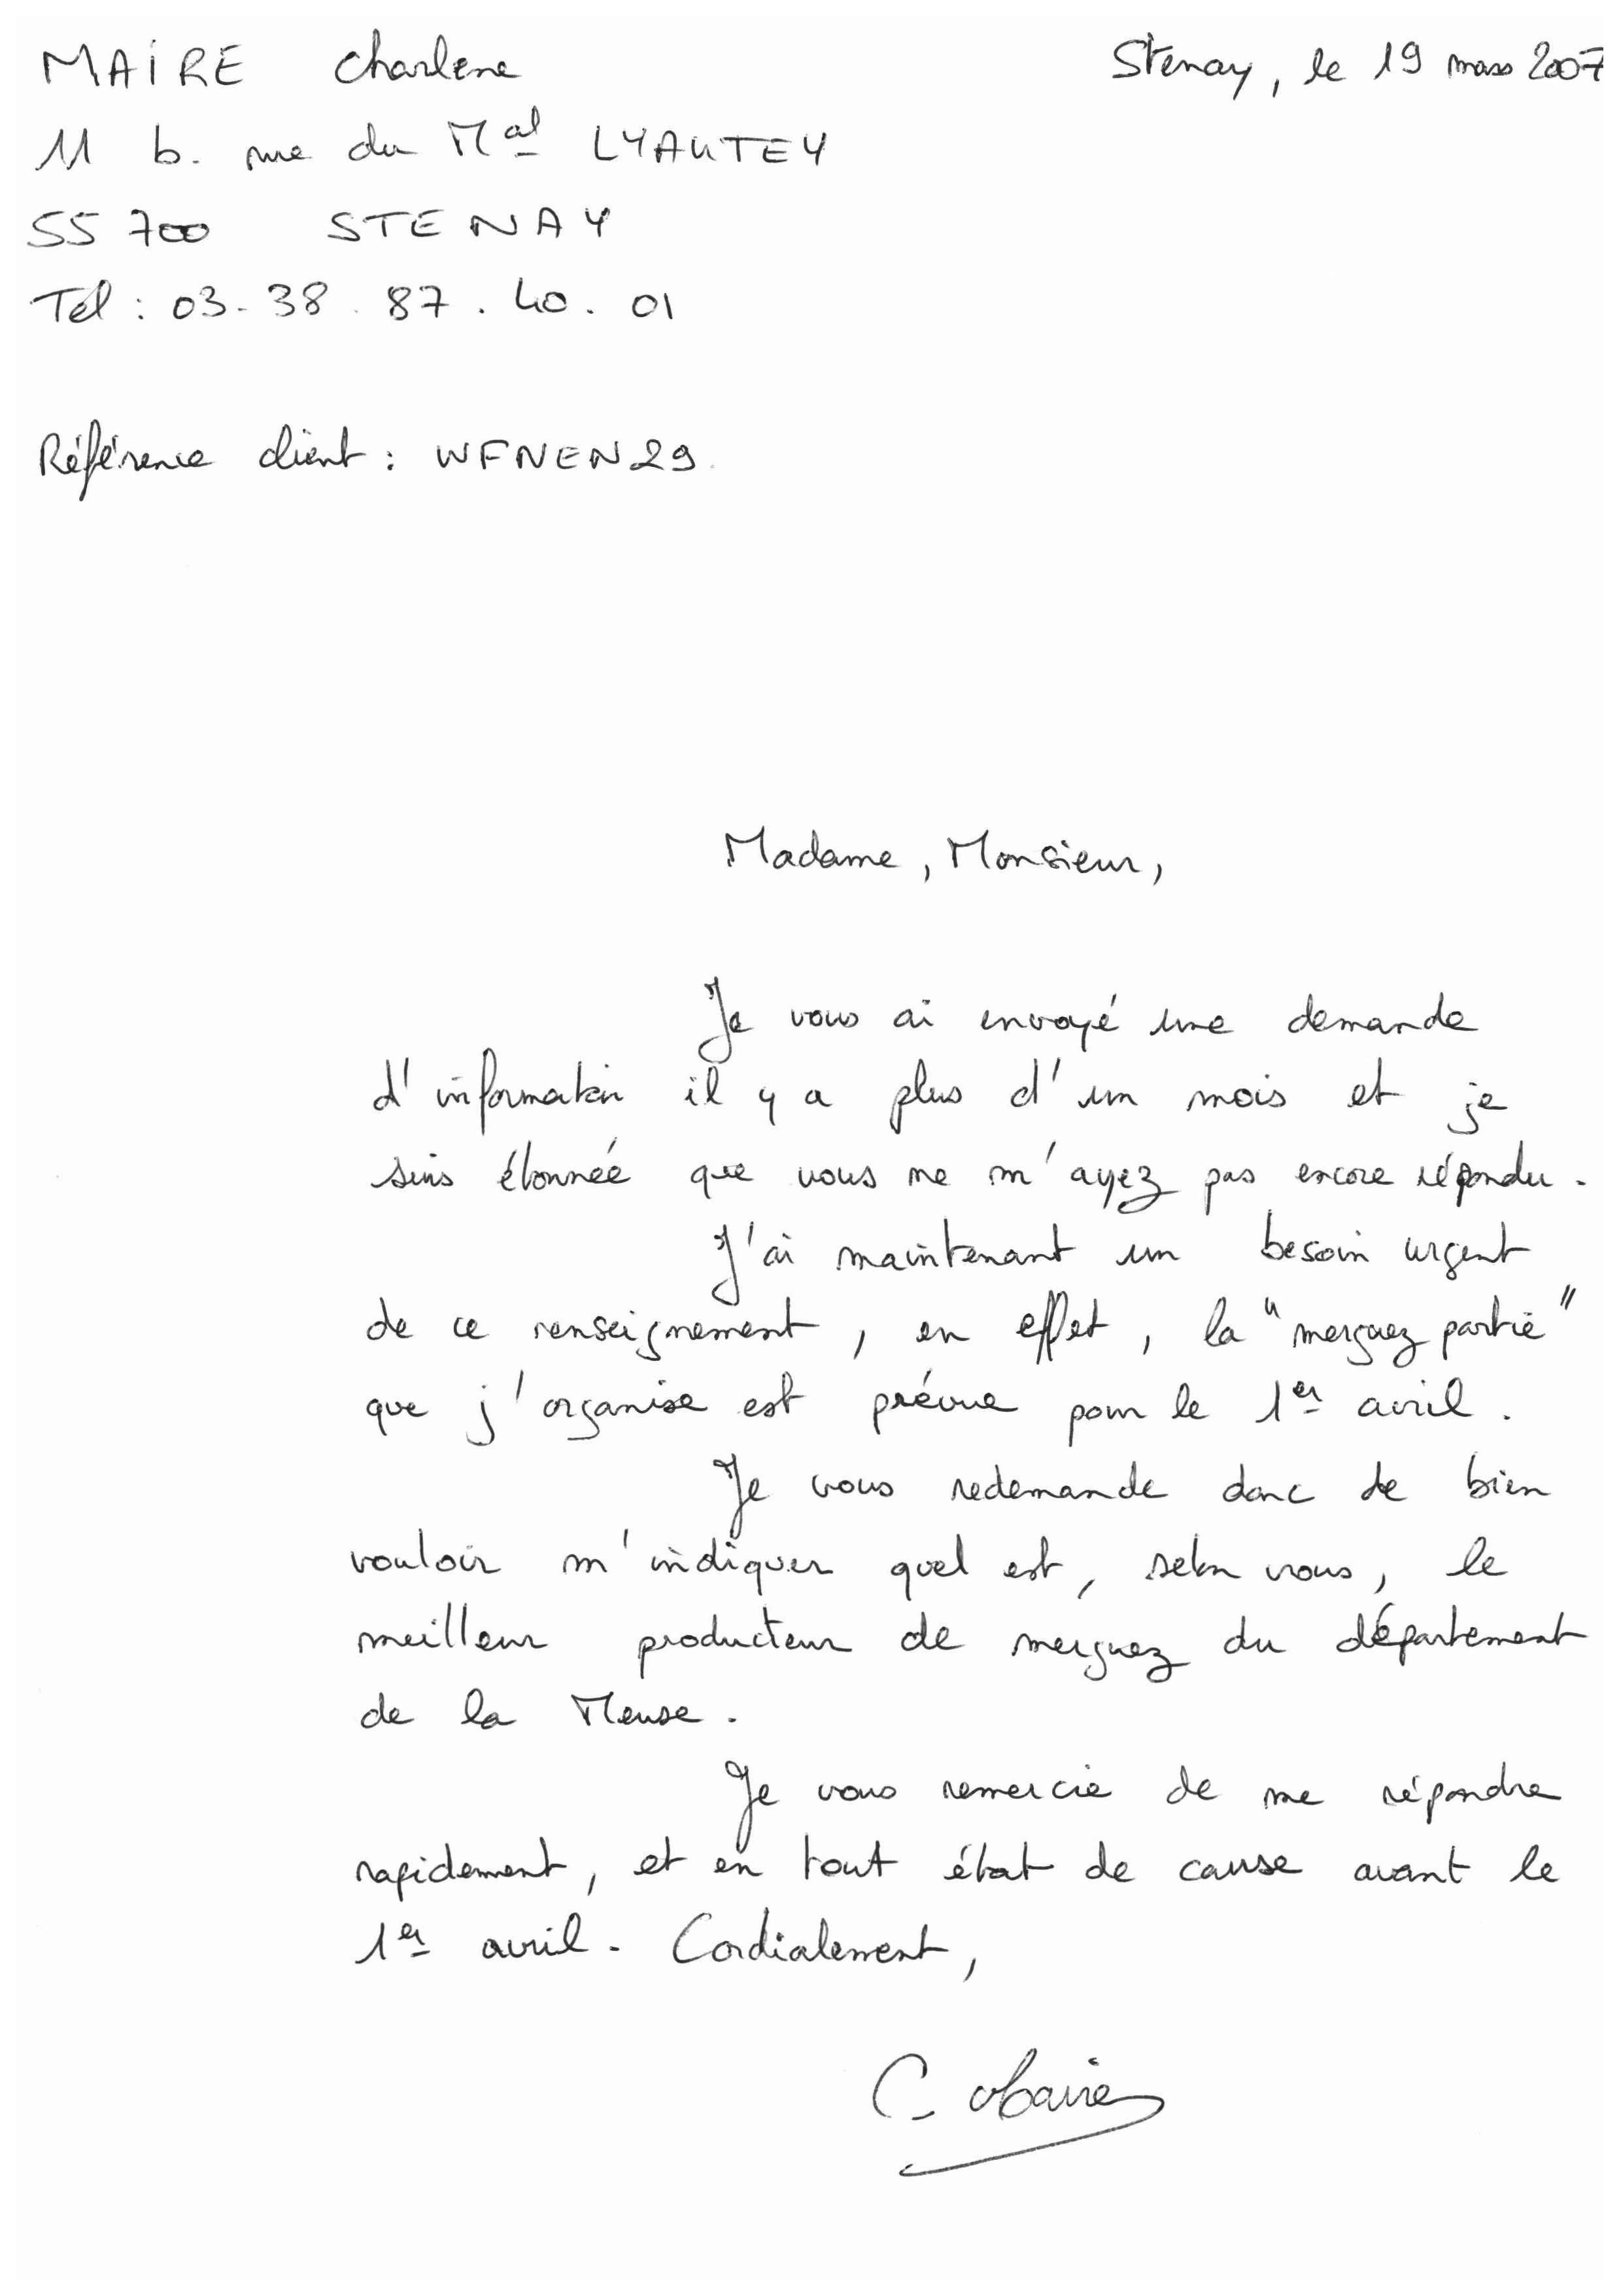 MAIRE Charlène
Stenay, le 19 mars 2007
11 b. rue du Mal LYAUTEY
55 700 STENAY
Tél : 03. 38. 87. 40. 01
Référence client : WFNEN29
Madame, Monsieur,
Je vous ai envoyé une demande
d'information il y a plus d'un mois et je
suis étonnée que vous ne m'ayez pas encore répondu.
J'ai maintenant un besoin urgent
de ce renseignement, en effet, la "merguez partie"
que j'organise est prévue pour le 1er avril.
Je vous redemande donc de bien
vouloir m'indiquer quel est, selon vous, le
meilleur producteur de merguez du département
de la Meuse.
Je vous remercie de me répondre
rapidement, et en tout état de cause avant le
1er avril. Cordialement,
C. Maire